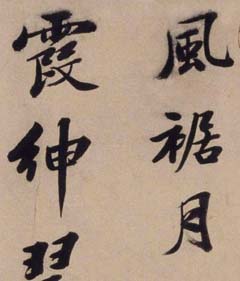 風裾月
霞紳